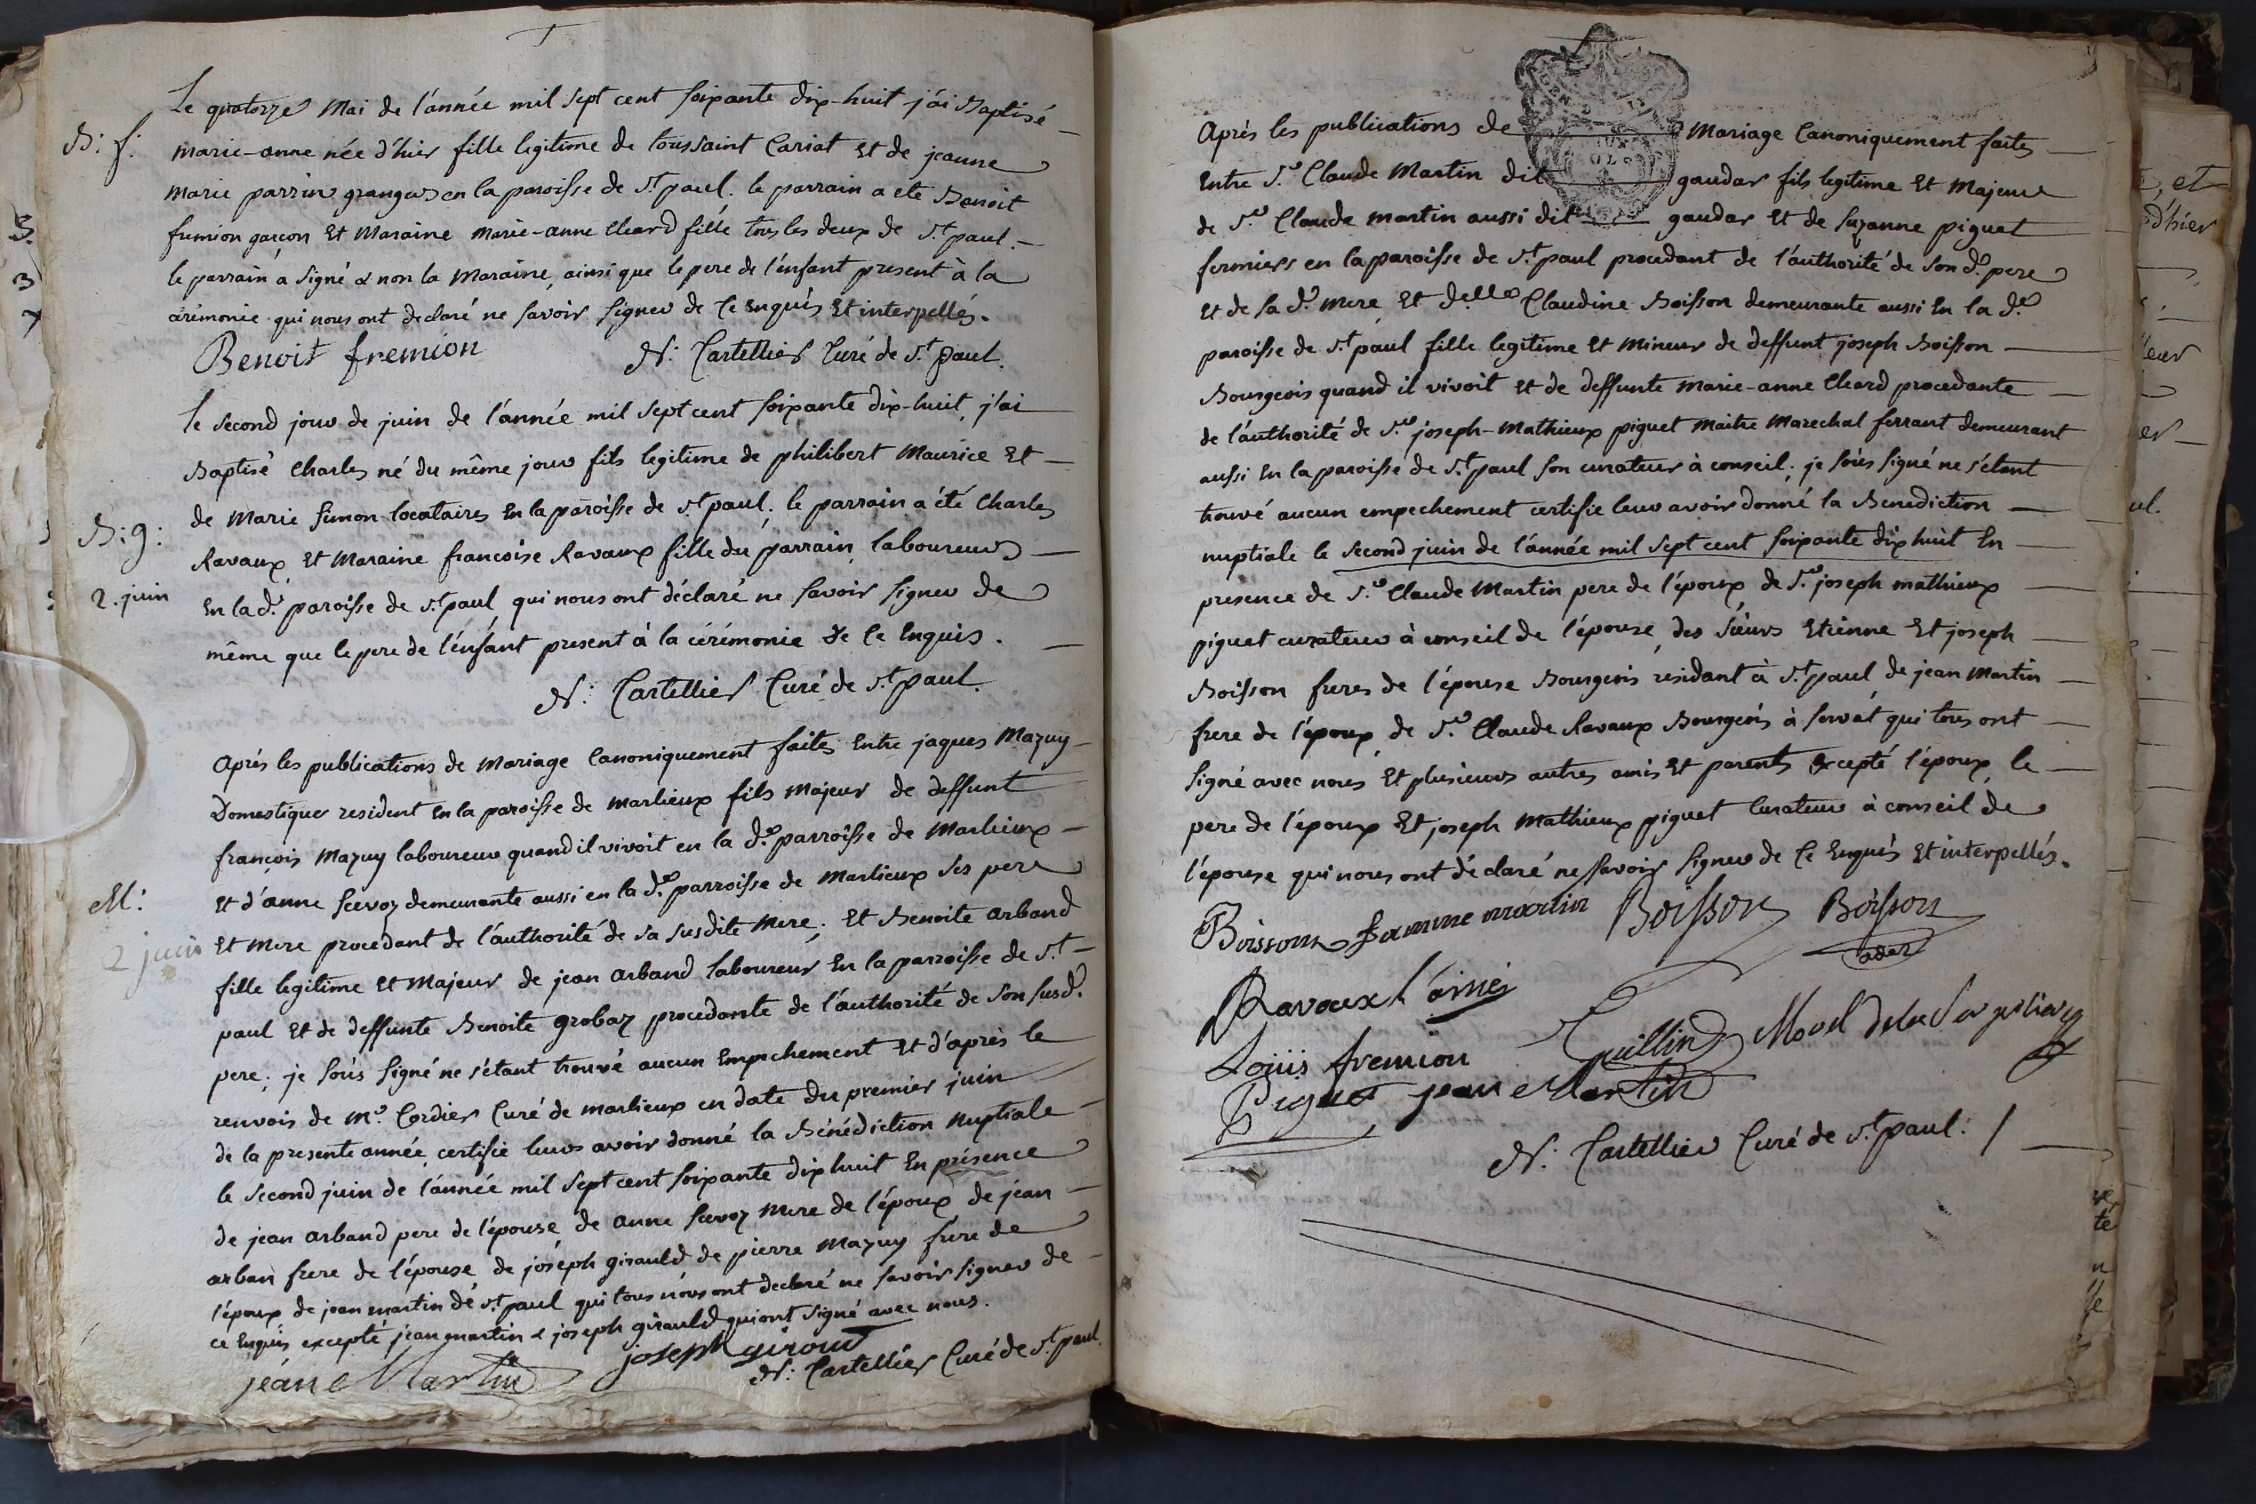 B: f:
Le quatorze Mai de l'année mil sept cent soixante dix-huit j'ai Baptisé
marie-anne née d'hier fille legitime de toussaint Cariat Et de jeanne
marie parrin grangers en la paroisse de St paul. le parrain a eté Benoit
fremion garçon Et Maraine marie-anne Cheard fille tous les deux de St paul.
le parrain a signé & non la Maraine, ainsi que le pere de l'enfant present à la
cérémonie qui nous ont declaré ne savoir signer de Ce Enquis Et interpellés.
Benoit fremion N: Cartellier Curé de St paul.
B: g:
2. juin
le second jour de juin de l'année mil sept cent soixante dix-huit, j'ai
Baptisé Charles né du même jour fils legitime de philibert Maurice Et
de Marie simon locataires En la paroisse de St paul. le parrain a été Charles
Ravaux Et Maraine francoise Ravaux fille du parrain, laboureurs
En la de paroisse de St paul qui nous ont déclaré ne savoir signer de
même que le pere de l'enfant present à la cérémonie de Ce Enquis.
N: Cartellier Curé de St paul.
M:
2 juin
Aprés les publications de Mariage Canoniquement faites Entre jaques Mazuy
Domestique resident En la paroisse de marlieux fils Majeur de deffunt
françois Mazuy laboureur quand il vivoit en la de parroisse de Marlieux
Et d'anne demeurante aussi en la de parroisse de Marlieux ses pere
Et Mere procedant de l'authorité de sa susdite Mere; Et Benoite arband
fille legitime Et Majeur de jean arband laboureur En la parroisse de St
paul Et de deffunte Benoite grobaz procedante de l'authorité de son susd.
pere; je soús signé ne s'étant trouvé aucun Empechement Et d'après le
renvois de Mr Cordier Curé de marlieux en date du premier juin
de la presente année certifie leurs avoir donné la Bénédiction Nuptiale
le second juin de l'année mil sept cent soixante dix huit En présence
de jean arband pere de l'épouse, de anne Mere de l'époux de jean
arban frere de l'épouse, de joseph girauld de pierre Mazuy frere de
l'époux de jean martin de St paul qui tous nous ont declaré ne savoir signer de
ce Enquis excepté jean martin & joseph girauld qui ont signé avec nous.
jean Martin joseph giroud
N: Cartellier Curé de St paul.
Aprés les publications de Mariage Canoniquement faites
Entre Sr Claude Martin dit gaudar fils legitime Et Majeur
de Sr Claude martin aussi dit gaudar Et de suzanne piguet
fermiers en la paroisse de St paul procedant de l'authorité de son d. pere
Et de sa de Mere, Et delle Claudine Boisson demeurante aussi En la de
paroisse de St paul fille legitime Et Mineur de deffunt joseph Boisson
Bourgeois quand il vivoit Et de deffunte Marie-anne Cheard procedante
de l'authorité de Sr joseph-Mathieux piguet Maitre Marechal ferrant demeurant
aussi En la paroisse de St paul son curateur à conseil; je soús signé ne s'étant
trouvé aucun empechement certifie leur avoir donné la Benediction
nuptiale le second juin de l'année mil sept cent soixante dix huit En
presence de Sr Claude Martin pere de l'époux de Sr joseph mathieux
piguet curateur à conseil de l'épouse, des sieurs Etienne Et joseph
Boisson freres de l'épouse Bourgeois résidant à St paul de jean Martin
frere de l'époux, de Sr Claude Ravaux Bourgeois à qui tous ont
signé avec nous Et plusieurs autres amis Et parents Excepté l'époux, le
pere de l'époux Et joseph Mathieux piguet Curateur à conseil de
l'épouse qui nous ont déclaré ne savoir signer de Ce Enquis Et interpellés.
Boisson famme martin Boisson Boisson
Ravaux l'ainé
Louis fremion Guillin
Piguet jean Martin
N: Cartellier Curé de St paul: /